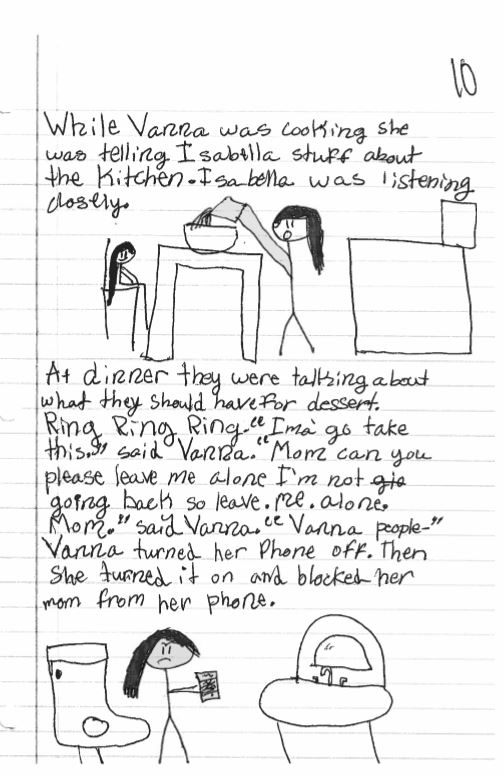 10
While Vanna was cooking she
was telling Isabella stuff about
the Kitchen. Isabella was listening
closely.
At dinner they were talking about
what they should have for dessert.
Ring Ring Ring. "Ima go take
this." said Vanna. "Mom can you
please leave me alone I'm not gio
going back so leave. me. alone.
Mom." said Vanna. "Vanna people-"
Vanna turned her Phone off. Then
She turned it on and blocked her
mom from her phone.